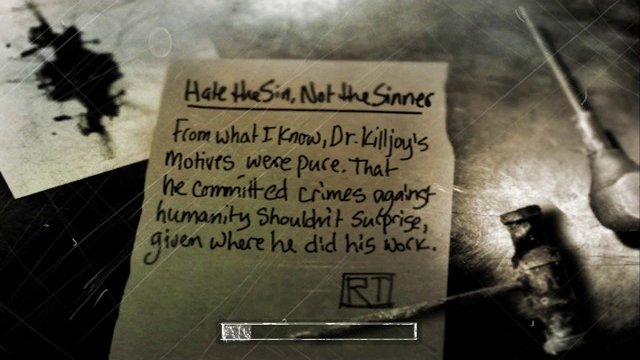 Hate the Sin, Not the Sinner
From what I Know, Dr. Killjoy's
Motives were pure. That
he committed crimes against
humanity Shouldn't surprise,
given where he did his work.
RT